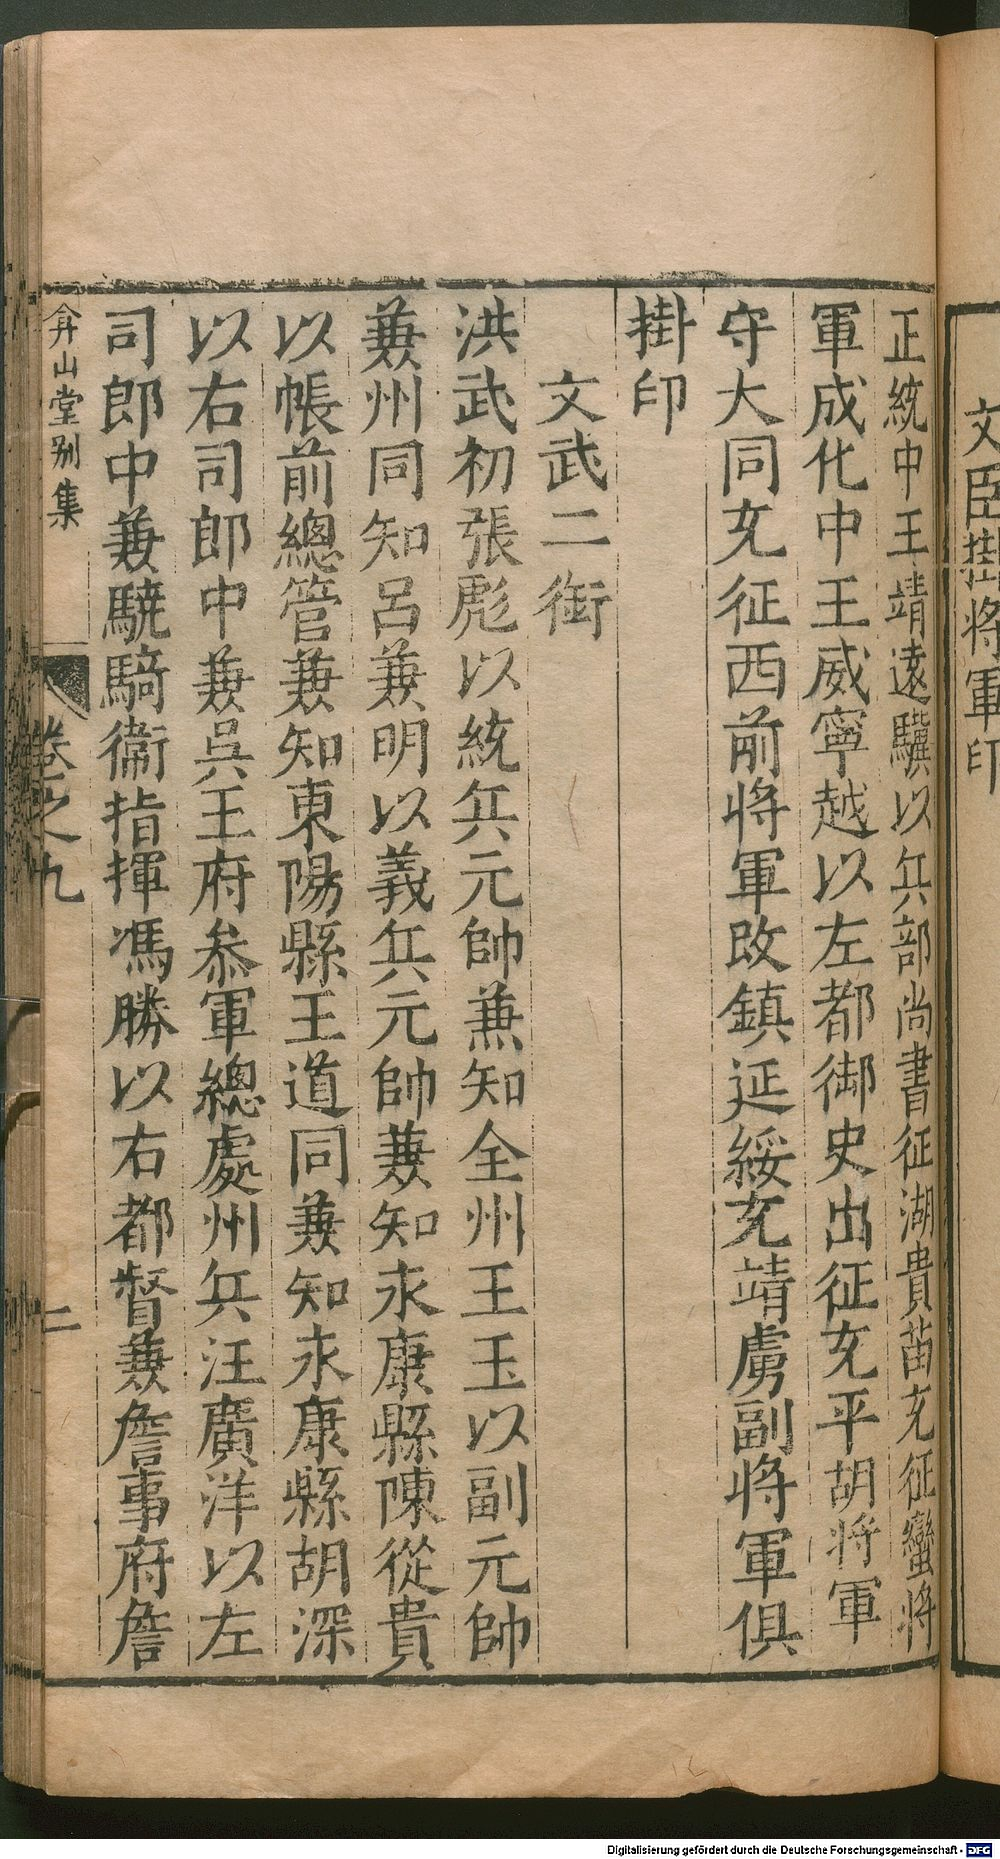 文臣掛將軍印
正統中王靖遠驥以兵部尚書征湖貴苗充征蠻將
軍成化中王威寧越以左都御史出征充平胡將軍
守大同充征西前將軍改鎮延綏充靖虜副將軍俱
掛印
文武二銜
洪武初張彪以統兵元帥兼知全州王玉以副元帥
兼州同知呂兼明以義兵元帥兼知永康縣陳從貴
以帳前總管兼知東陽縣王道同兼知永康縣胡深
以右司郎中兼吳王府叅軍總處州兵汪廣洋以左
司郎中兼驍騎衞指揮馮勝以右都督兼詹事府詹
弇山堂别集
卷之九
二
Digitalisierung gefördert durch die Deutsche Forschungsgemeinschaft - DFG